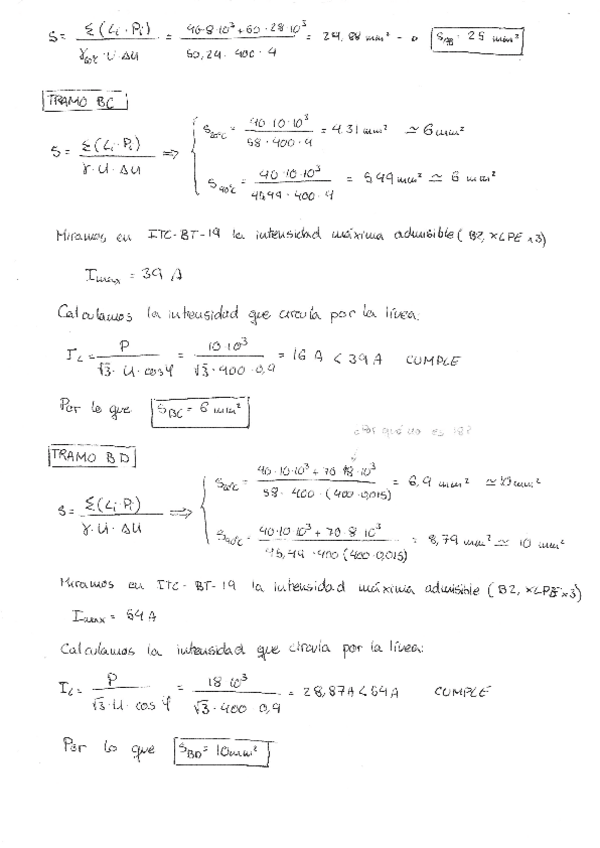 S = Σ(Li·Pi) / γ60ºC·U·ΔU = 40·8·10³ + 60·28·10³ / 50,24·400·4 = 24,88 mm² → SAB = 25 mm²
TRAMO BC
S = Σ(Li·Pi) / γ·U·ΔU ⇒ { = 40·10·10³ / 58·400·4 = 4,31 mm² ≃ 6 mm²
S90ºC = 40·10·10³ / 45,49·400·4 = 5,49 mm² ≃ 6 mm²
Miramos en ITC-BT-19 la intensidad máxima admisible (B2, XLPE x3)
Imax = 39 A
Calculamos la intensidad que circula por la línea:
IL = P / √3·U·cosφ = 10·10³ / √3·400·0,9 = 16 A < 39 A CUMPLE
Por lo que SBC = 6 mm²
¿Por qué no es 18?
TRAMO BD
S = Σ(Li·Pi) / γ·U·ΔU ⇒ { = 40·10·10³ + 70·8·10³ / 58·400·(400·0,015) = 6,9 mm² ≃ 10 mm²
S90ºC = 40·10·10³ + 70·8·10³ / 45,49·400(400·0,015) = 8,79 mm² ≃ 10 mm²
Miramos en ITC-BT-19 la intensidad máxima admisible (B2, XLPE x3)
Imax = 54 A
Calculamos la intensidad que circula por la línea:
IL = P / √3·U·cosφ = 18·10³ / √3·400·0,9 = 28,87A < 54A CUMPLE
Por lo que SBD = 10mm²